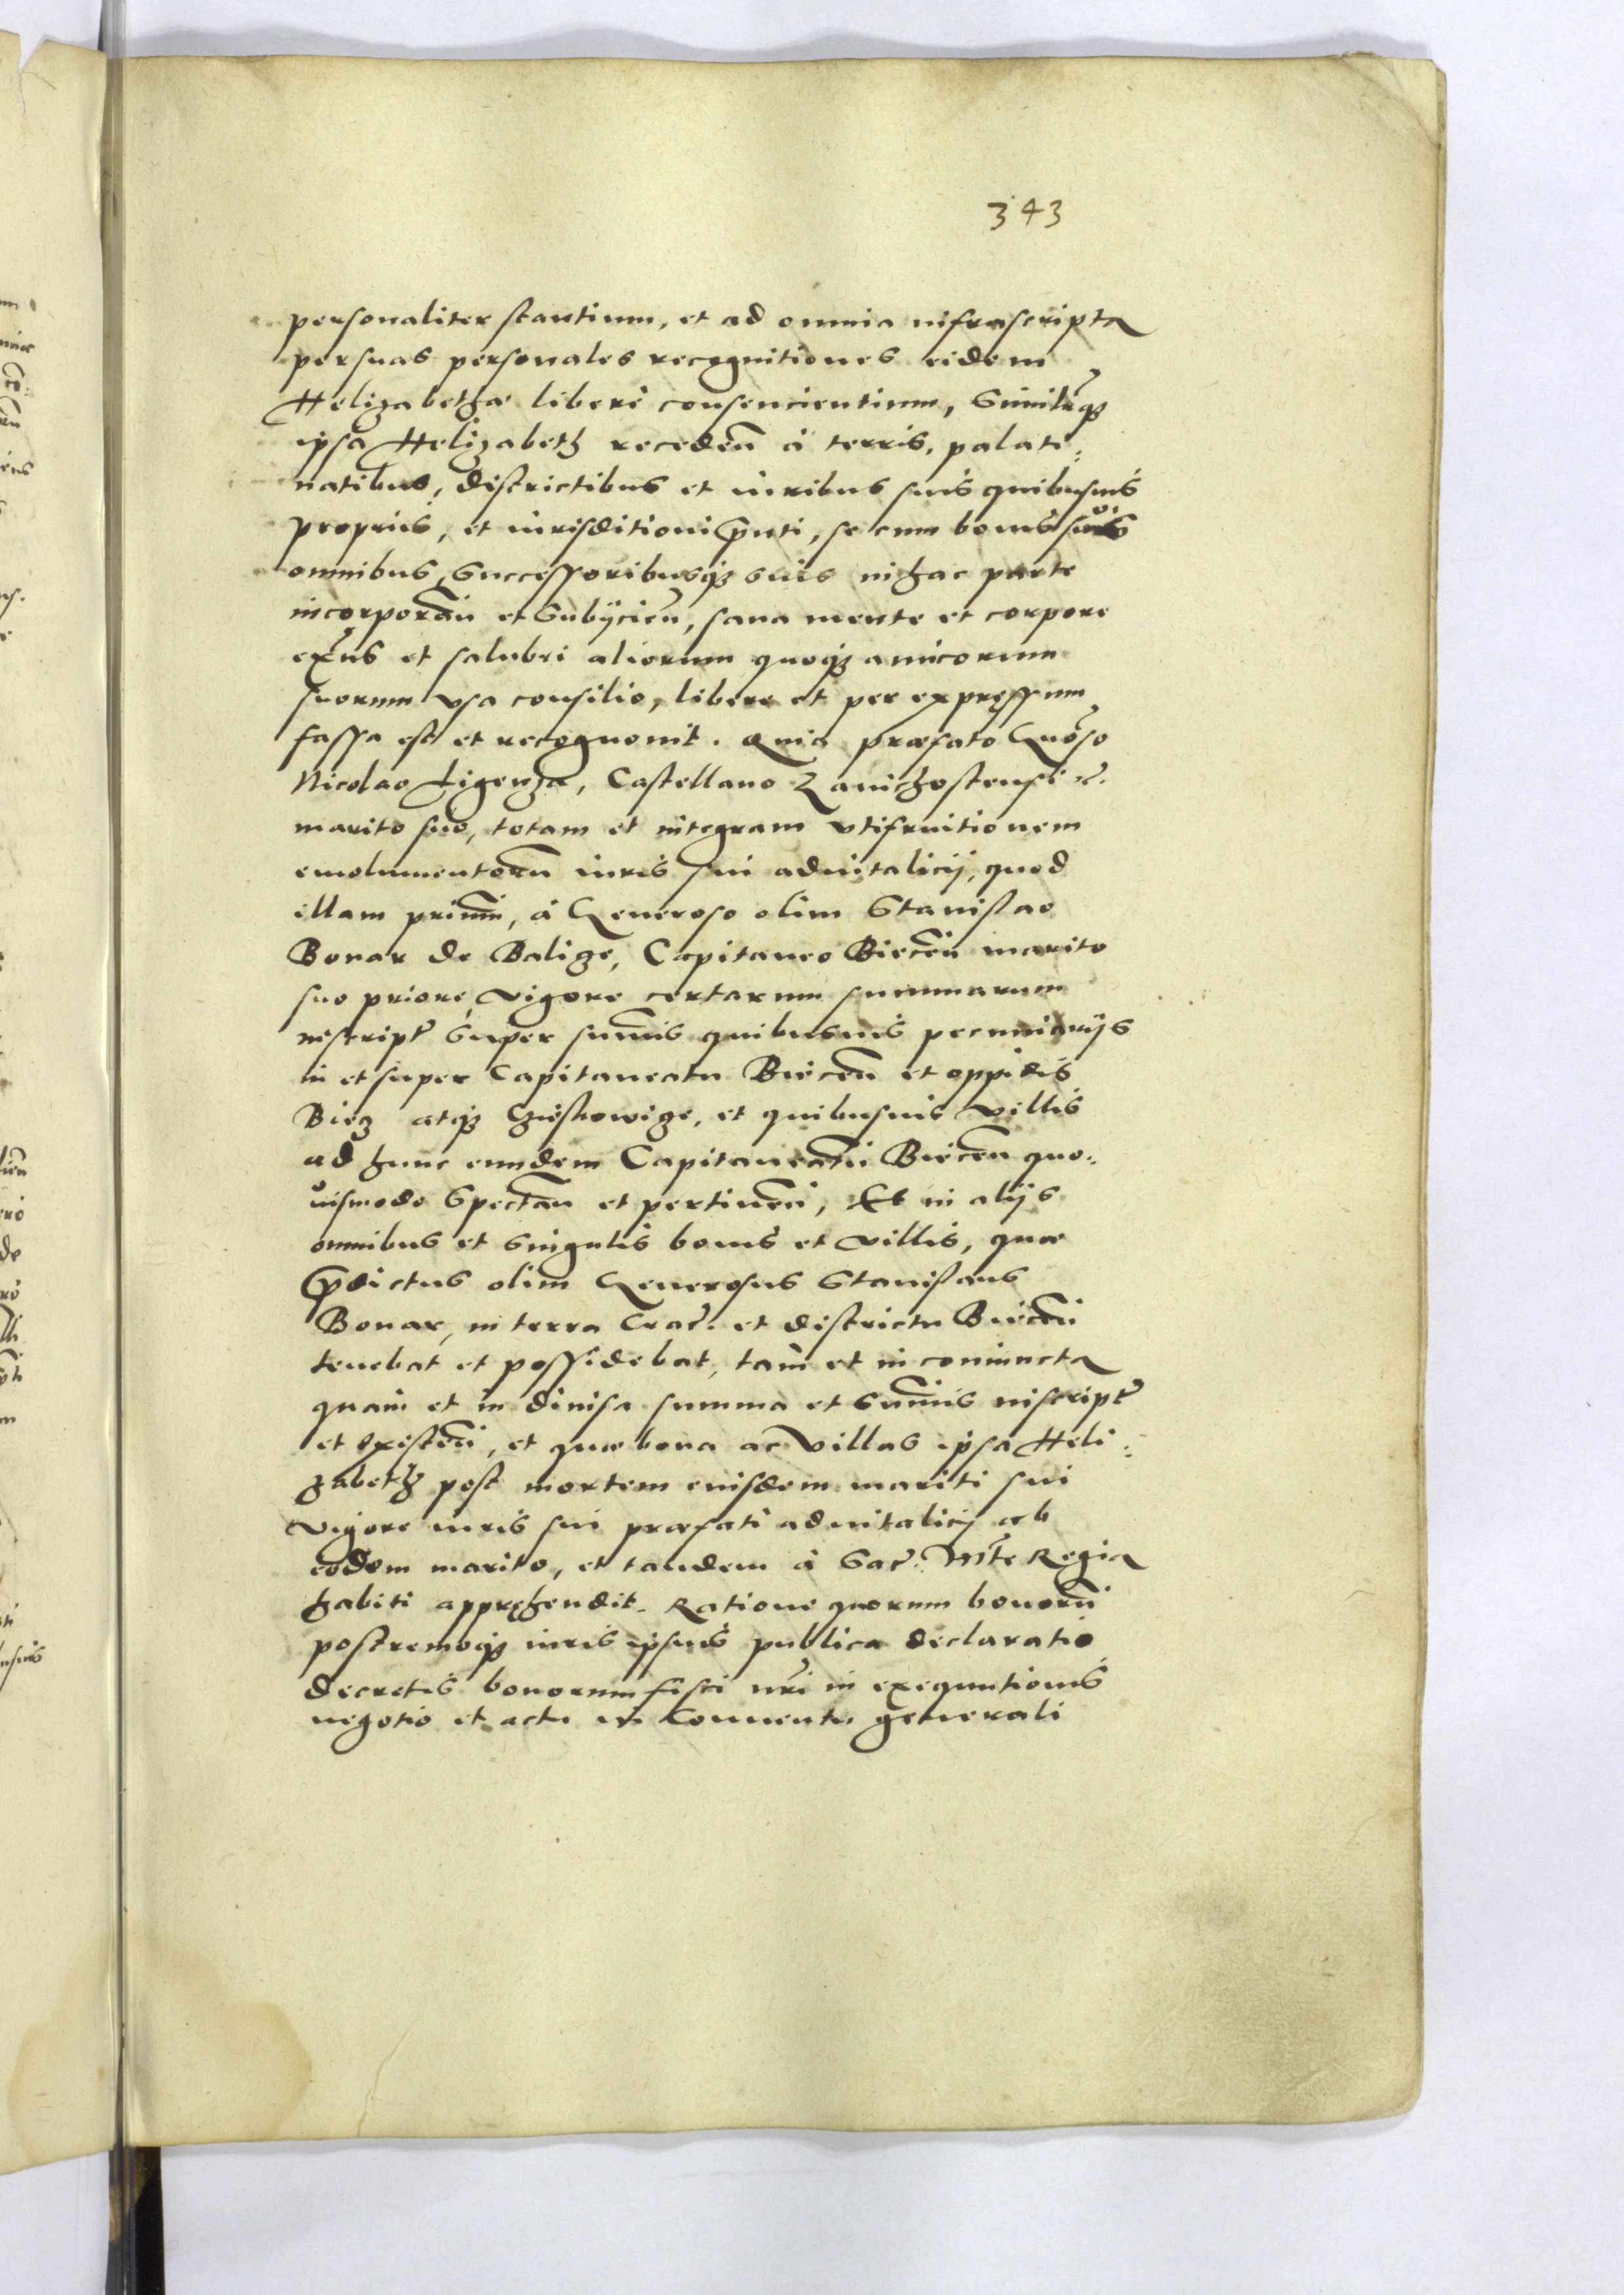 343
personaliter stantium, et ad omnia infrascripta
per suas personales recognitiones eidem
Helizabethae liberè consencientium, Similitʳqꝫ
ipsa Helizabeth recedeñ à terris, palati⸗
natibus, districtibus et iuribus suis quibusuis
proprijs, et iurisditioni p̃nti, se cum bonis suis
omnibus, Successoribusqꝫ suis in hac parte
incorporañ et Subijcieñ, sana mente et corpore
exñs et salubri aliorum quoqꝫ amicorum
suorum vsa consilio, libere et per expręssum
fassa est et recognouit. Quia praefato Gñoso
Nicolao Ligenza, Castellano Zawichostensi ꝛc.
marito suo, totam et integram vtifruitionem
emolumentorũ iuris sui aduitalicij, quod
illam primũ, à Generoso olim Stanislao
Bonar de Balize, Capitaneo Biecẽn marito
suo priore, vigore certarum summarum
inscript̃ super sum̃is quibusuis pecuniarijs
in et super Capitaneatu Biecẽn et oppidis
Biez atqꝫ, et quibusuis villis
ad hunc eundem Capitaneatũ Biecẽn quo⸗
uismodo Spectañ et pertineñ, Et in alijs
omnibus et singulis bonis et villis, quae
p̃dictus olim Generosus Stanislaus
Bonar, in terra Crac̃. et districtu Biecẽn
tenebat et possidebat, tam et in coniuncta
quam et in diuisa summa et sum̃is inscript̃
et existeñ, et quae bona ac villas ipsa Heli⸗
zabeth post mortem eiusdem mariti sui
vigore iuris sui praefati aduitalicij ab
eodem marito, et tandem à Sac̃. Mt̃e Regia
habiti appręhendit. Ratione quorum bonorũ
postremoqꝫ iuris ipsius publica declaratio
decretis bonorum fisci nr̃i in exequutionis
negotio et actu in Conuentu generali